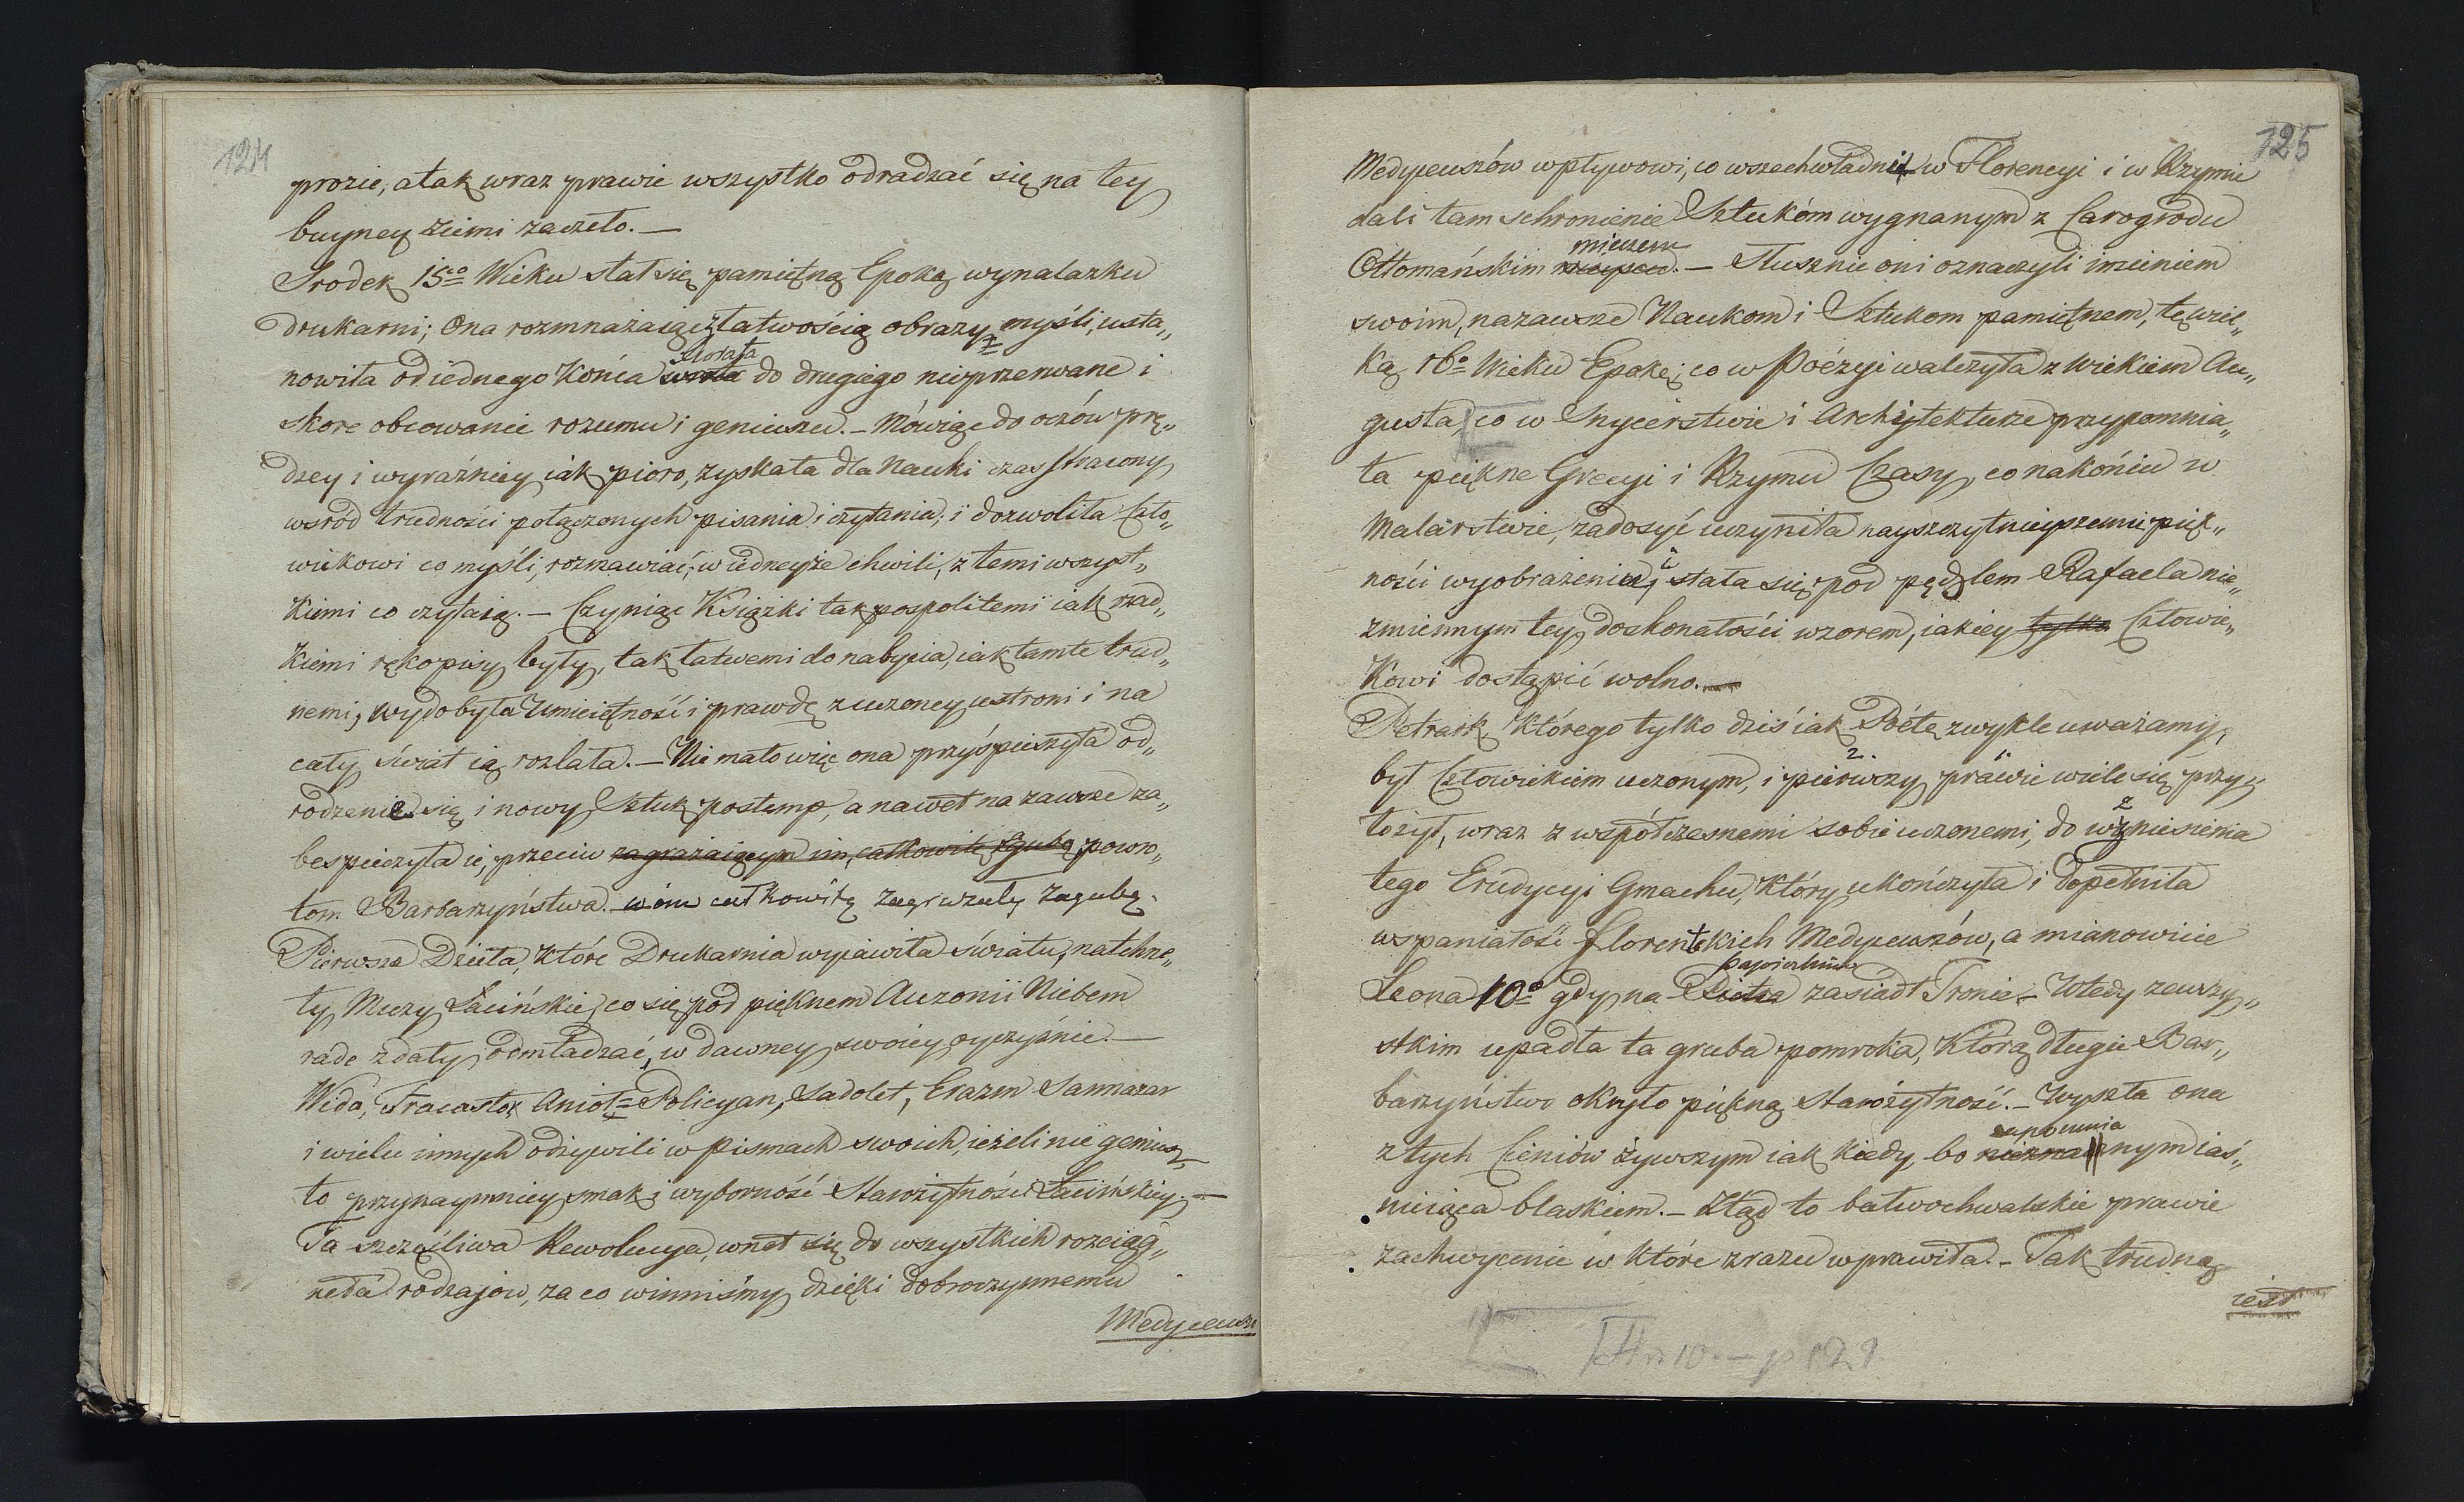 124
prozie, a tak wraz prawie wszystko odradzać się na tey
buyney ziemi zaczeło. —
Srodek 15go Wieku stał się pamiętną Epoką wynalazku
drukarni; Ona rozmnażaiąc z łatwością obrazy myśli, usta„
nowiła od iednego Końca świata do drugiego nieprzerwane i
skore obcowanie rozumu i geniuszu. — Mówiąc do oczów prę„
dzey i wyraźniey iak pioro, zyskała dla Nauki czas stracony
wsród trudności połączonych pisania i czytania; i dozwoliła Czło„
wiekowi co myśli, rozmawiać; w iedneyże chwili, z temi wszyst„
kiemi co czytaią. — Czyniąc Książki tak pospolitemi iak rzad„
kiemi rękopisy były, tak łatwemi do nabycia, iak tamte trud„
nemi, wydobyła Umieiętność i prawdę z uczoney ustroni i na
cały świat ią rozlała. — Nie mało więc ona przyśpieszyła od„
rodzenie się i nowy Sztuk postemp, a nawet na zawsze za„
bespieczyła ie, przeciw zagrażaiącym im całkowitą zgubą powro„
tom Barbarzyństwa. całkowitą zagubę.
Pierwsze Dzieła, które Drukarnia wyiawiła światu, natchne„
ły Muzy Łacińskie, co się pod pięknem Auzonii Niebem
rade zdały odmładzać, w dawney swoiey oyczyźnie. —
Wida, Fracastor, Anioł=Policyan, Sadolet, Erazm Sannazar
i wielu innych odżywili w pismach swoich, ieżeli nie geniusz,
to przynaymniey smak i wyborność Starożytności Łacińskiey. —
Ta szczęśliwa Rewolucya, wnet się do wszystkich rozciąg„
neła rodzajow, za co winniśmy dzięki dobroczynnemu
Medyceuszo
125
Medyceuszów wpływowi, co wszechwładni w Florencyi i w Rzymie
dali tam schronienie Sztukóm wygnanym z Carogrodu
mieczem
Ottomańskim. — Słusznie oni oznaczyli imieniem
swoim, nazawsze Naukom i Sztukom pamiętnem, tę wiel„
ką 16o Wieku Epokę; co w Poézyi walczyła z wiekiem Au„
gusta, co w Snycerstwie i Architekturze przypomnia„
ła piękne Grecyi i Rzymu Czasy, co nakońcu w
Malarstwie, zadosyć uczyniła nayszczytnieyszemi pięk„
ności wyobrażenia, i stała się pod pędzlem Rafaela nie„
zmiennym tey doskonałości wzorem, iakiey tylko Człowie„
kowi dostąpić wolno. —
Petrark, którego tylko dziś iak Poétę zwykle uważamy,
był Człowiekiem uczonym, i pierwszy prawie wiele się przy„
łożył, wraz z współczesnemi sobie uczonemi, do wzniesienia
tego Erudycyi Gmachu, który ukończyła i dopełniła
wspaniałość florentskich Medyceuszów, a mianowicie
Leona 10o gdy na Piotra zasiadł Tronie. — Wtedy zewszy„
stkim upadła ta gruba pomroka, którą długie Bar„
barzyństwo okryło piękną Starożytność. — Wyszła ona
z tych Cieniów żywszym iak kiedy, bo nieznanym iaś„
nieiąca blaskiem. — Ztąd to bałwochwalskie prawie
zachwycenie w które zrazu wprawiła. — Tak trudną
iest